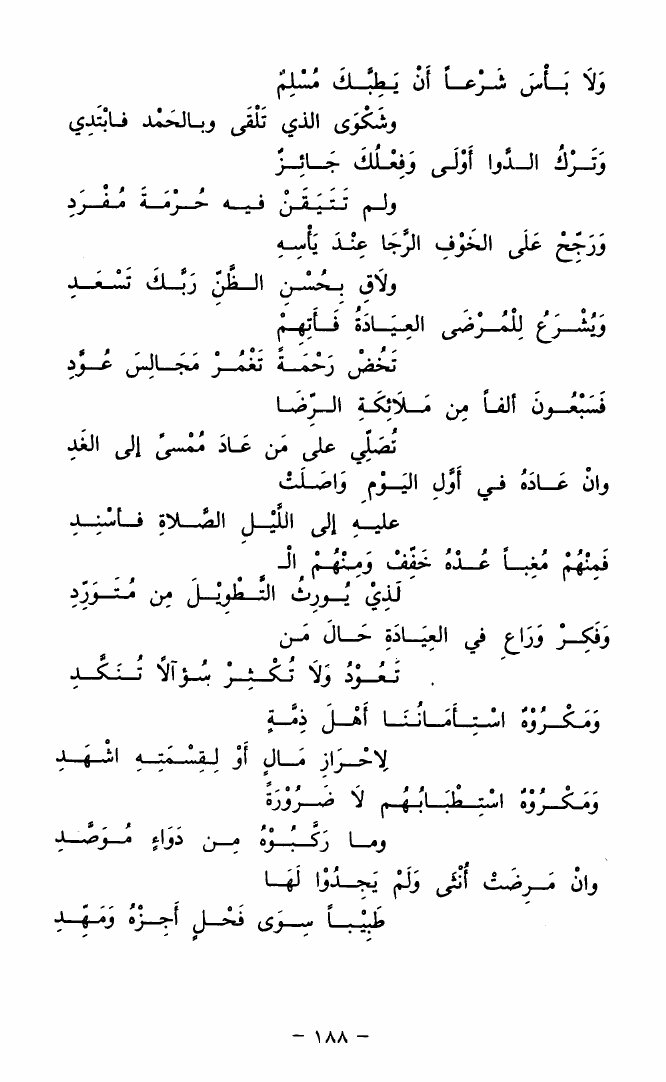 وَلَا بَأْسَ شَرْعاً أَنْ يَطِبَّكَ مُسْلِمٌ
وشَكْوَى الذي تَلْقَى وبالحَمْد فَابْتَدِي
وَتَرْكُ الدَّوا أَوْلَى وَفِعْلُكَ جَائِزٌ
ولم تَتَيَقَّنْ فيه حُرْمَةَ مُفْرَدِ
وَرَجِّحْ عَلَى الخَوْفِ الرَّجَا عِنْدَ يَأْسِهِ
ولَاقِ بِحُسْنِ الظَّنِّ رَبَّكَ تَسْعَدِ
وَيُشْرَعُ لِلْمُرْضَى العِيَادَةُ فَأْتِهِمْ
تَخُضْ رَحْمَةً تَغْمُرْ مَجَالِسَ عُوَّدِ
فَسَبْعُونَ ألفاً مِن مَلَائِكَةِ الرِّضَا
تُصَلِّي على مَن عَادَ مُمْسىً إلى الغَدِ
وانْ عَادَهُ في أَوَّلِ اليَوْمِ وَاصَلَتْ
عليهِ إلى اللَّيْلِ الصَّلاةِ فَأَسْنِدِ
فَمِنْهُمْ مُغِباً عُدْهُ خَفِّفْ وَمِنْهُمْ الْـ
ـلَذِيْ يُورِثُ التَّطْوِيْلَ مِن مُتَوَرِّدِ
وَفَكِّرْ وَرَاعِ في العِيَادَةِ حَالَ مَن
تَعُوْدُ وَلَا تُكْثِرْ سُؤَآلاً تُنَكَّدِ
وَمَكْرُوْهٌ اسْتِأمَانُنَا أَهْلَ ذِمَّةٍ
لِاحْرَازِ مَالٍ أَوْ لِقِسْمَتِهِ اشْهَدِ
وَمَكْرُوْهٌ اسْتِطْبَابُهُم لَا ضَرُوْرَةً
وما رَكَّبُوْهُ مِن دَوَاءٍ مُوَصَّدِ
وانْ مَرِضَتْ أُنْثَى وَلَمْ يَجِدُوْا لَهَا
طَبِيْباً سِوَى فَحْلٍ أَجِزْهُ وَمَهِّدِ
– ١٨٨ –